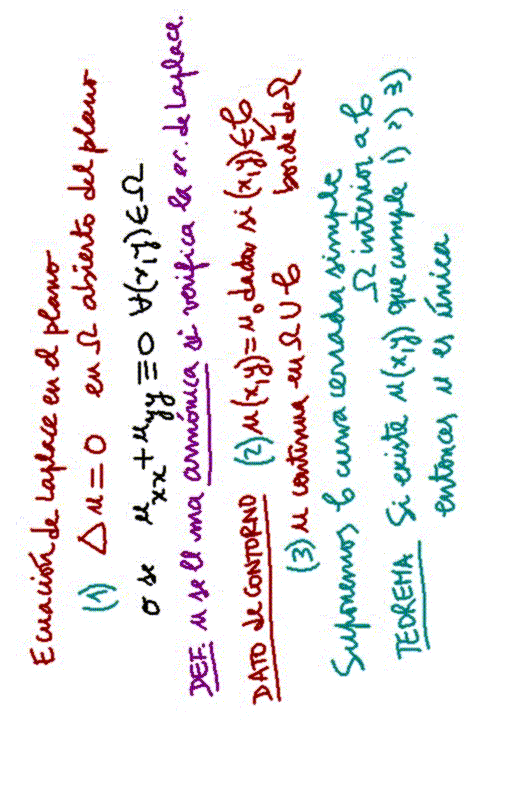 Ecuación de Laplace en el plano
(1) Δu=0 en Ω abierto del plano
o se u_xx+u_yy=0 ∀(x,y)∈Ω
DEF. u se ll ma armónica si verifica la ec. de Laplace.
DATO de CONTORNO (2) u(x,y)=u₀ dado, si (x,y)∈C
borde de Ω
(3) u continua en Ω∪C
Suponemos C curva cerrada simple
Ω interior a C
TEOREMA Si existe u(x,y) que cumple 1) 2) 3)
entonces u es única